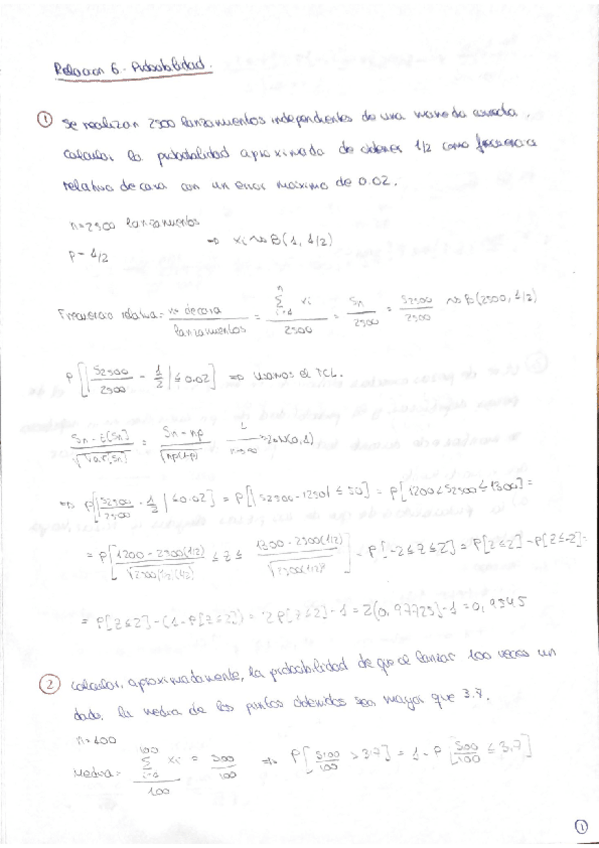 Relacion 6. Probabilidad.
① Se realizan 2500 lanzamientos independientes de una moneda correcta.
Calcular la probabilidad aproximada de obtener 1/2 como frecuencia
relativa de cara con un error máximo de 0.02.
n=2500 lanzamientos
p=1/2 ⇒ xi ~> B(1, 1/2)
Frecuencia relativa = nº de cara / lanzamientos = Σ_{i=1}^{n} xi / 2500 = Sn / 2500 = S2500 / 2500 ~> B(2500, 1/2)
P[|S2500/2500 - 1/2| ≤ 0.02] ⇒ usamos el TCL.
Sn - E(Sn) / √Var(Sn) = Sn - np / √np(1-p) —L→ n→∞ Z~N(0,1)
⇒ P[|S2500/2500 - 1/2| ≤ 0.02] = P[|S2500 - 1250| ≤ 50] = P[1200 ≤ S2500 ≤ 1300] =
= P[1200 - 2500(1/2) / √2500(1/2)(1/2) ≤ Z ≤ 1300 - 2500(1/2) / √2500(1/2)²] = P[-2 ≤ Z ≤ 2] = P[Z ≤ 2] - P[Z ≤ -2] =
= P[Z ≤ 2] - (1 - P[Z ≤ 2]) = 2P[Z ≤ 2] - 1 = 2(0,97725) - 1 = 0,9545
② Calcular, aproximadamente, la probabilidad de que al lanzar 100 veces un
dado, la media de los puntos obtenidos sea mayor que 3.7.
n=100
Media = Σ_{i=1}^{100} xi / 100 = S100 / 100 ⇒ P[S100/100 > 3.7] = 1 - P[S100/100 ≤ 3.7]
1